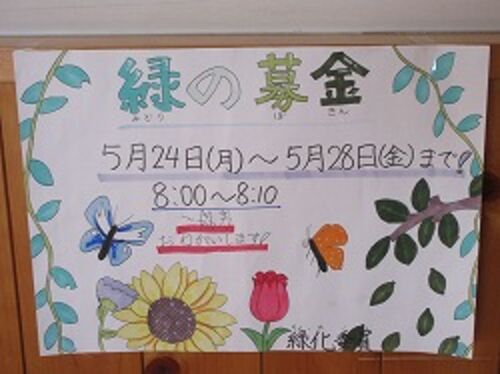 緑の募金
みどり ぼ きん
5月24日(月)～5月28日(金)まで!
8:00～8:10
おねがいします!
緑化委員